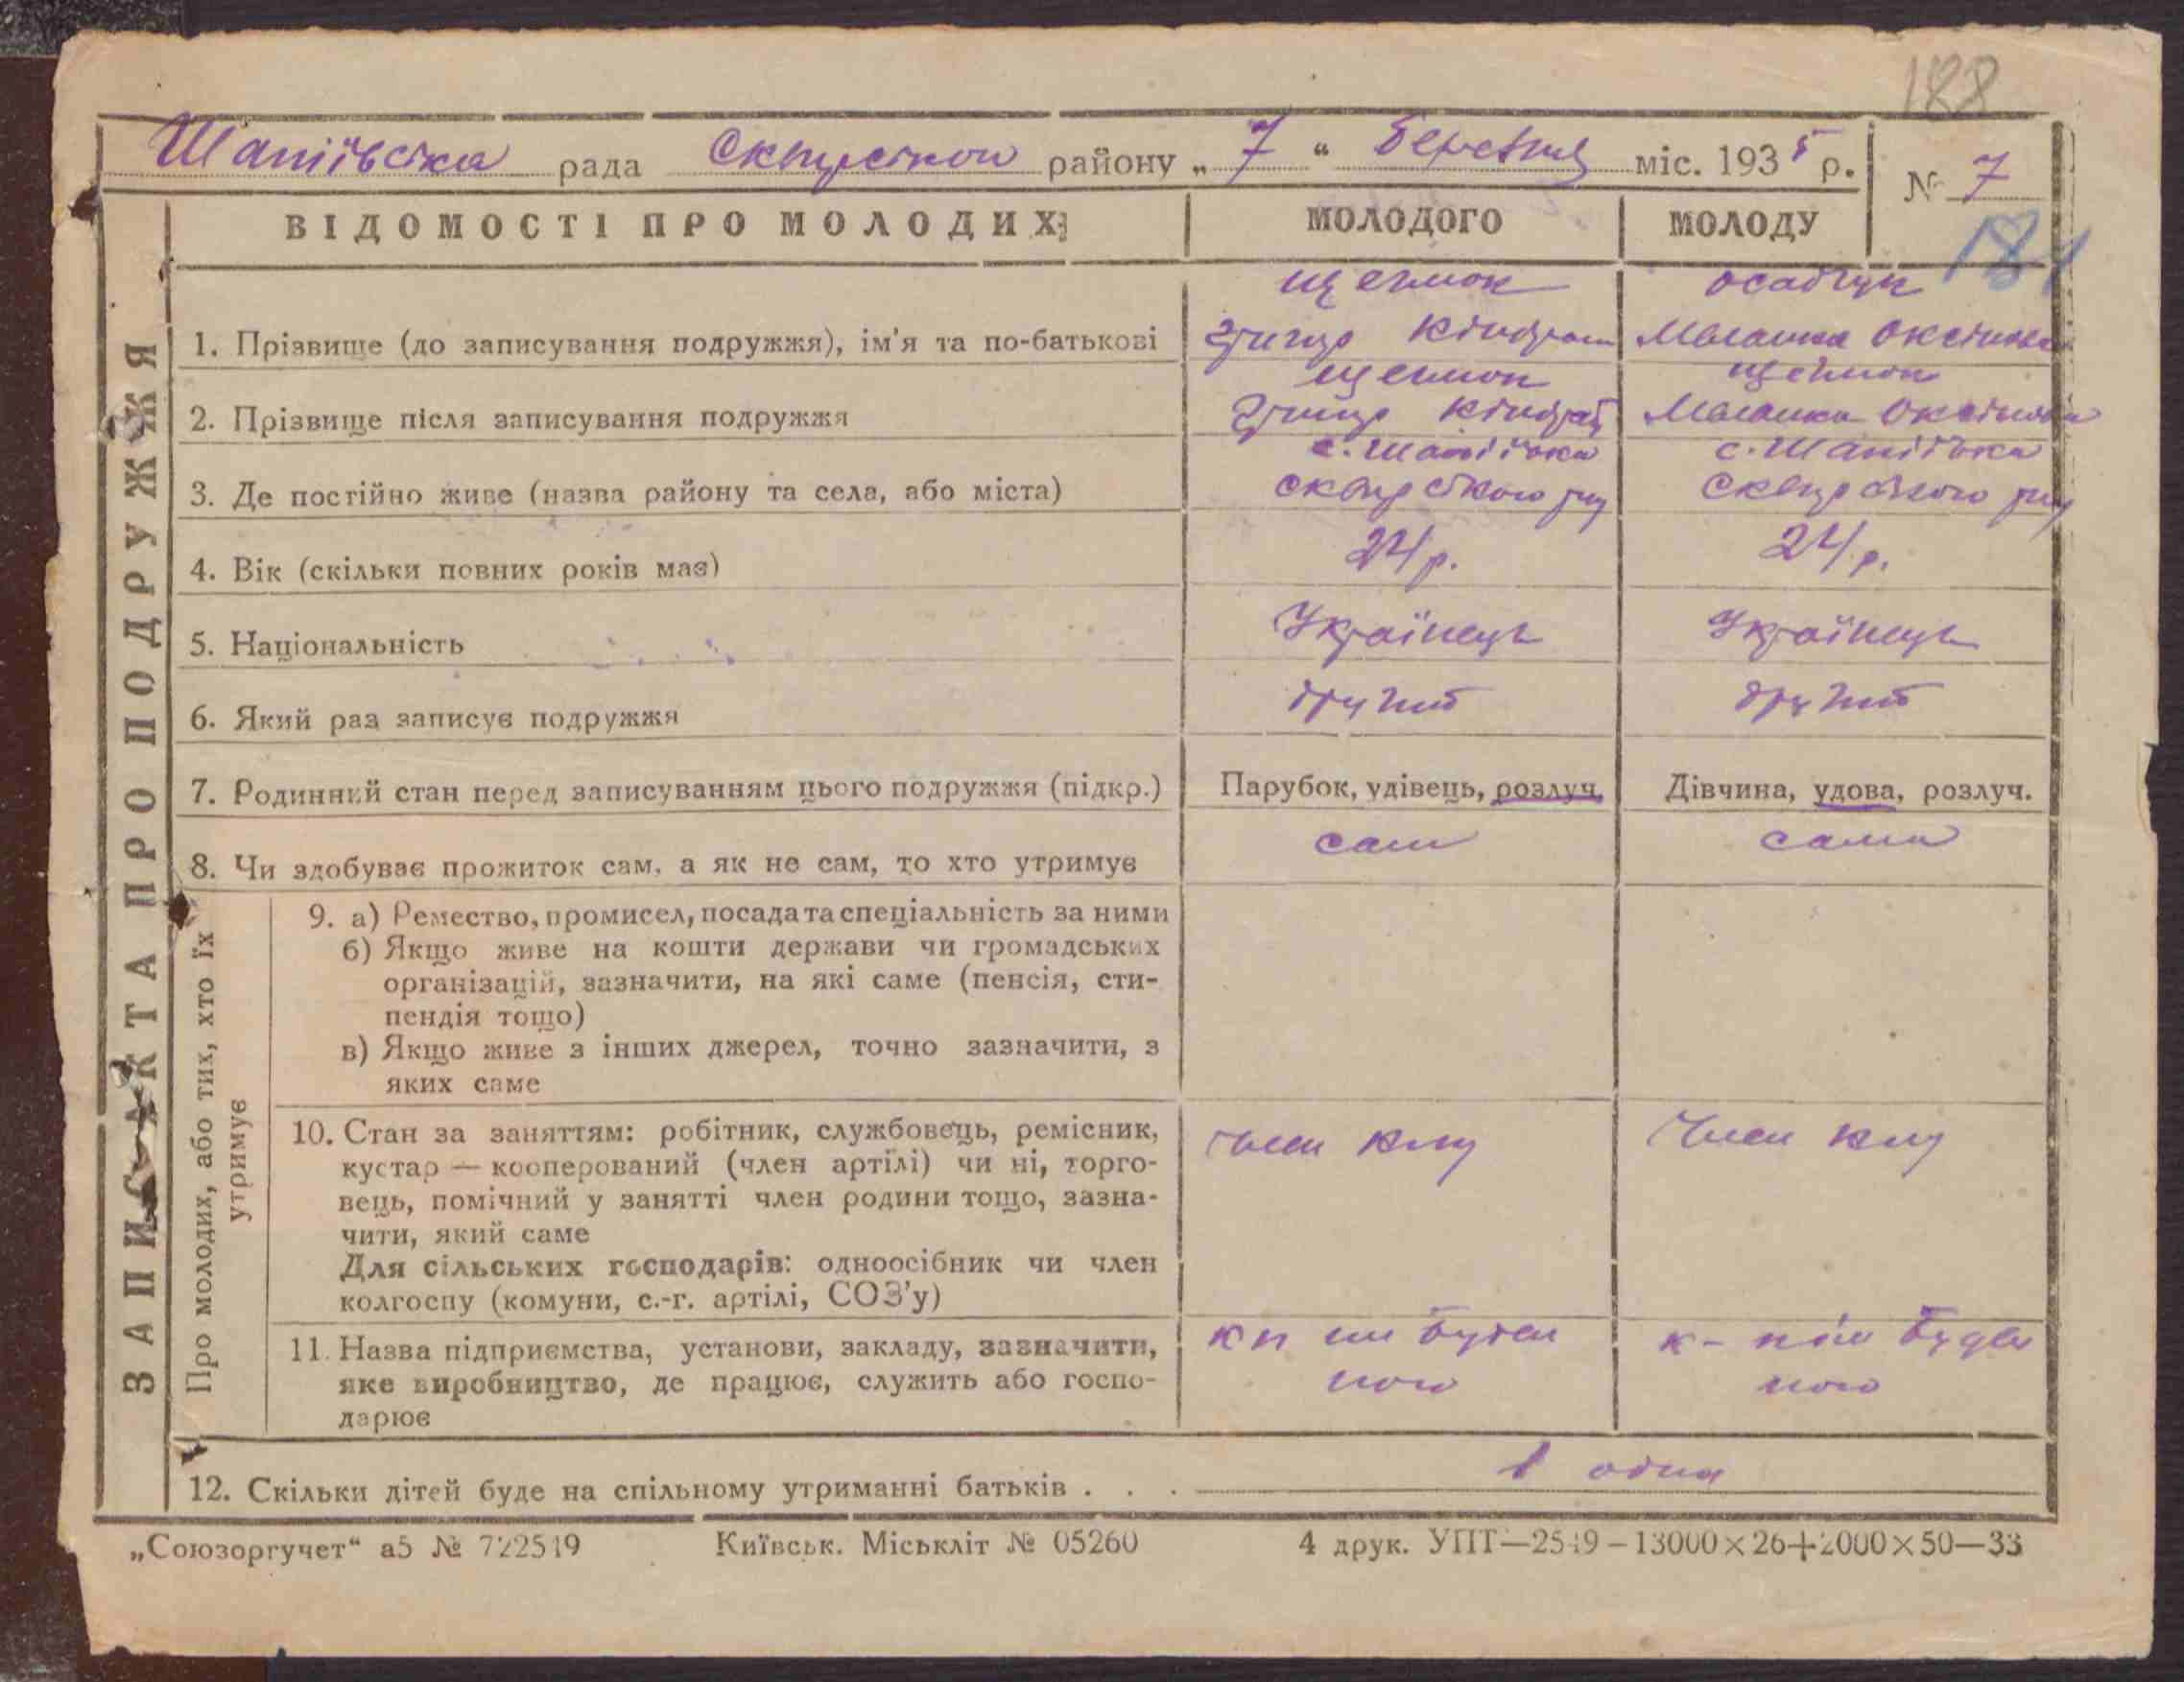 188
Шапіївська рада Сквирськои району „ 7 “ березня міс. 1935 р.
№ 7
ВІДОМОСТІ ПРО МОЛОДИХ
МОЛОДОГО
МОЛОДУ
ЗАПИС АКТА ПРО ПОДРУЖЖЯ
1. Прізвище (до записування подружжя), ім'я та по-батькові
Осадчук
Маланка
2. Прізвище після записування подружжя
Маланка
3. Де постійно живе (назва району та села, або міста)
с. Шапіївка
сквирського
с. Шапіївка
Сквирського
4. Вік (скільки повних років має)
24 р.
24 р.
5. Національність
Українець
Українець
6. Який раз записує подружжя
7. Родинний стан перед записуванням цього подружжя (підкр.)
Парубок, удівець, розлуч.
Дівчина, удова, розлуч.
8. Чи здобуває прожиток сам, а як не сам, то хто утримує
сам
сама
Про молодих, або тих, хто їх утримує
9. а) Ремество, промисел, посада та спеціальність за ними
б) Якщо живе на кошти держави чи громадських
організацій, зазначити, на які саме (пенсія, сти-
пендія тощо)
в) Якщо живе з інших джерел, точно зазначити, з
яких саме
10. Стан за заняттям: робітник, службовець, ремісник,
кустар — кооперований (член артілі) чи ні, торго-
вець, помічний у занятті член родини тощо, зазна-
чити, який саме
Для сільських господарів: одноосібник чи член
колгоспу (комуни, с.-г. артілі, СОЗ'у)
член
член
11. Назва підприємства, установи, закладу, зазначити,
яке виробництво, де працює, служить або госпо-
дарює
12. Скільки дітей буде на спільному утриманні батьків . . .
1 одна
„Союзоргучет“ а5 № 722519
Київськ. Міськліт № 05260
4 друк. УПТ—2519—13000×26+2000×50—33